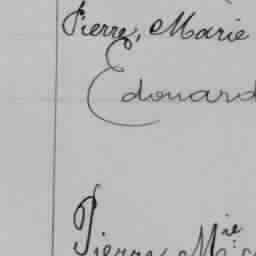 Pierre, Marie
Edouard
Pierre Mie